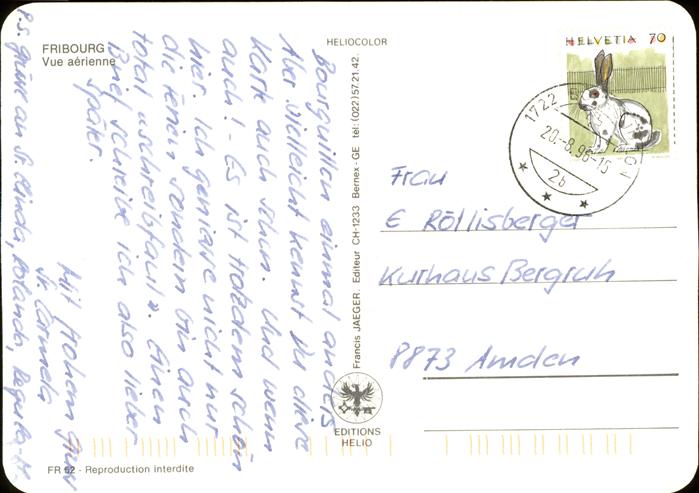 FRIBOURG
Vue aérienne
HELIOCOLOR
HELVETIA 70
1722
20.-8.96-15
2b
Bourguillon einmal anders
Aber vielleicht kennst Du diese
Karte auch schon. Und wenn
auch! - Es ist trotzdem schön
hier. Ich geniesse nicht nur
die Ferien sondern bin auch
total "schreibfaul". Einen
Brief schreibe ich also lieber
später.
Mit frohem Gruss
Sr. Carmela
P.S. Grüsse an Sr. Linda, Rolanda,
Frau
E Röthlisberger
Kurhaus Bergruh
8873 Amden
Francis JAEGER. Editeur CH-1233 Bernex-GE tel: (022) 57.21.42.
EDITIONS
HELIO
FR 52 - Reproduction interdite